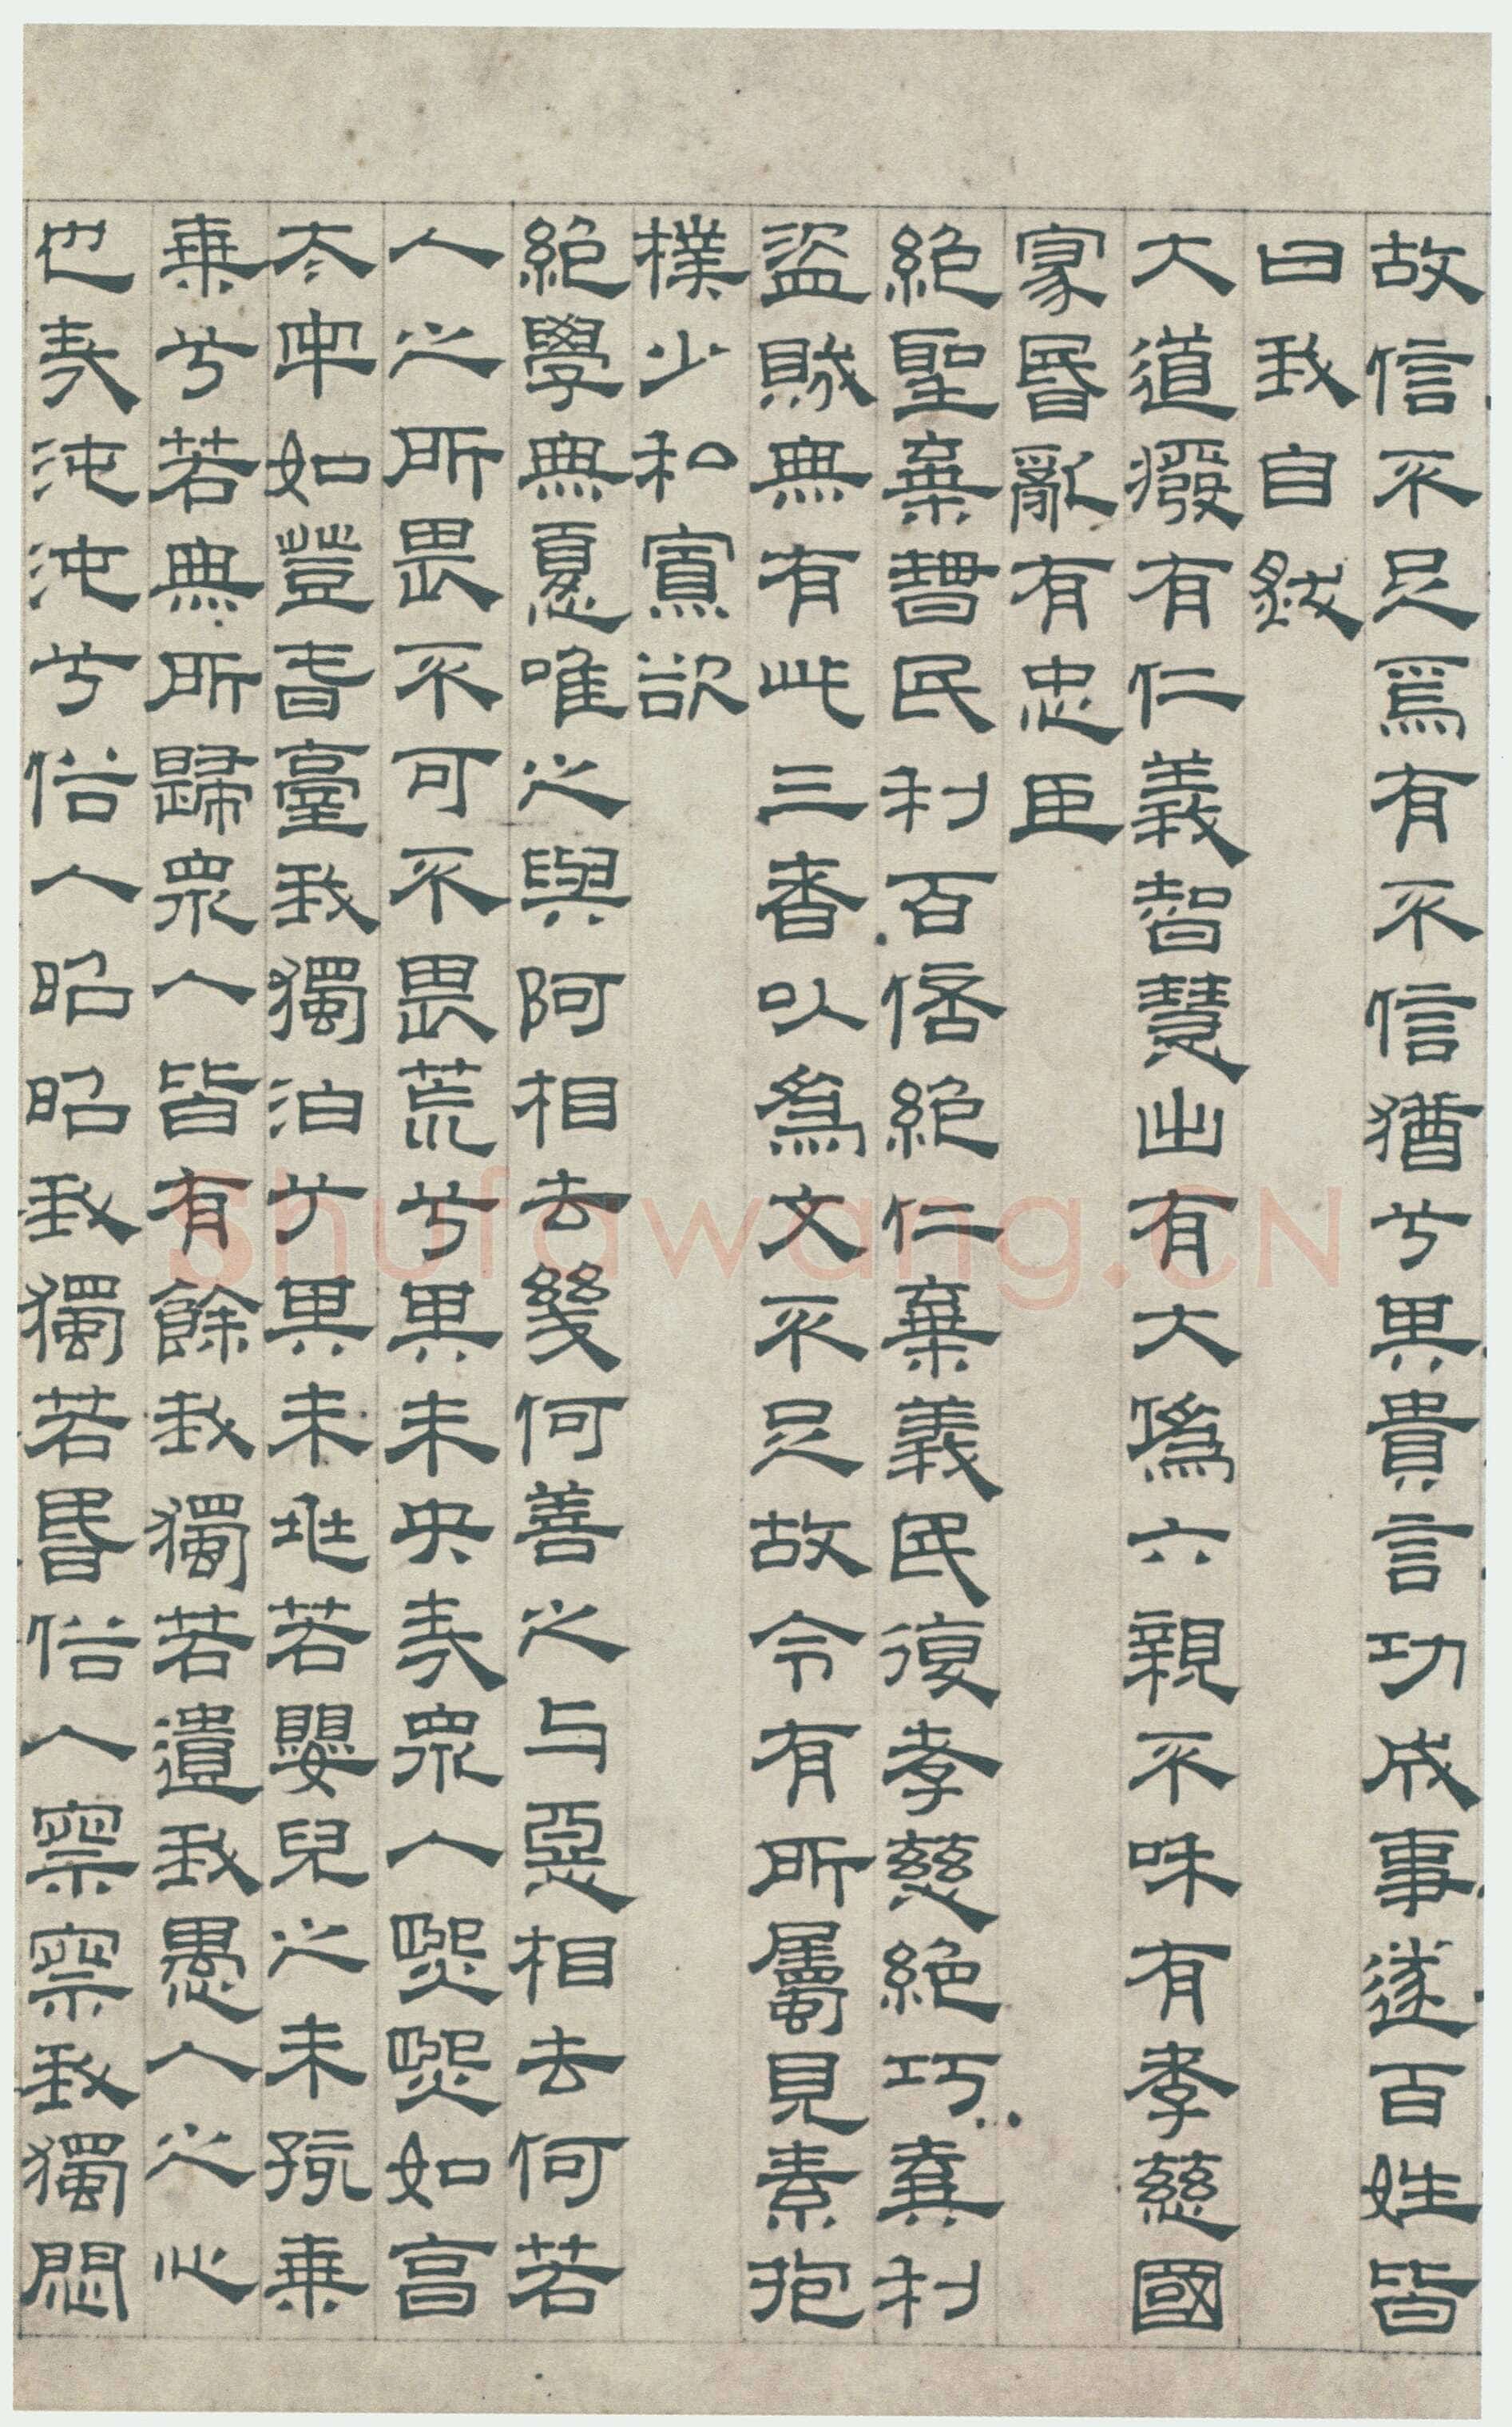 故信不足焉有不信猶兮其貴言功成事遂百姓皆
曰我自然
大道廢有仁義智慧出有大僞六親不和有孝慈國
家昬亂有忠臣
絕聖棄智民利百倍絕仁棄義民復孝慈絕巧棄利
盜賊無有此三者以爲文不足故令有所屬見素抱
樸少私寡欲
絕學無憂唯之與阿相去幾何善之与惡相去何若
人之所畏不可不畏荒兮其未央哉衆人熙熙如享
太牢如登春臺我獨泊兮其未兆若嬰兒之未孩乘
乘兮若無所歸衆人皆有餘我獨若遺我愚人之心
也哉沌沌兮俗人昭昭我獨若昬俗人察察我獨悶
Shufawang.CN